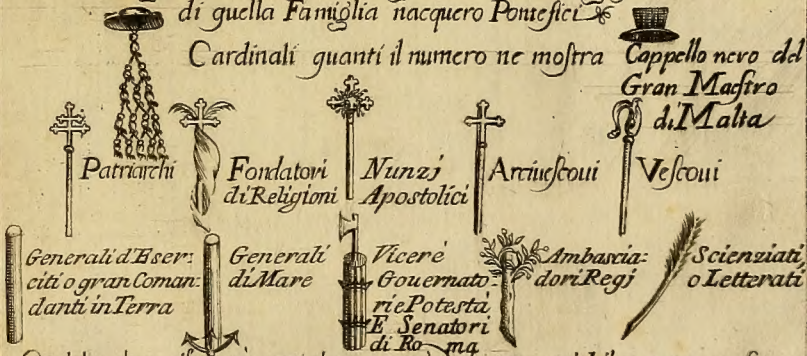 di quella Famiglia nacquero Pontefici
Cardinali quanti il numero ne mostra
Cappello nero del
Gran Maestro
di Malta
Patriarchi
Fondatori
di Religioni
Nunzj
Apostolici
Arciuescoui
Vescoui
Generali d'Eser:
citi o gran Coman:
danti in Terra
Generali
di Mare
Vicerè
Gouernato:
ri e Potestà
E Senatori
di Roma
Ambascia:
dori Regj
Scienziati,
o Letterati